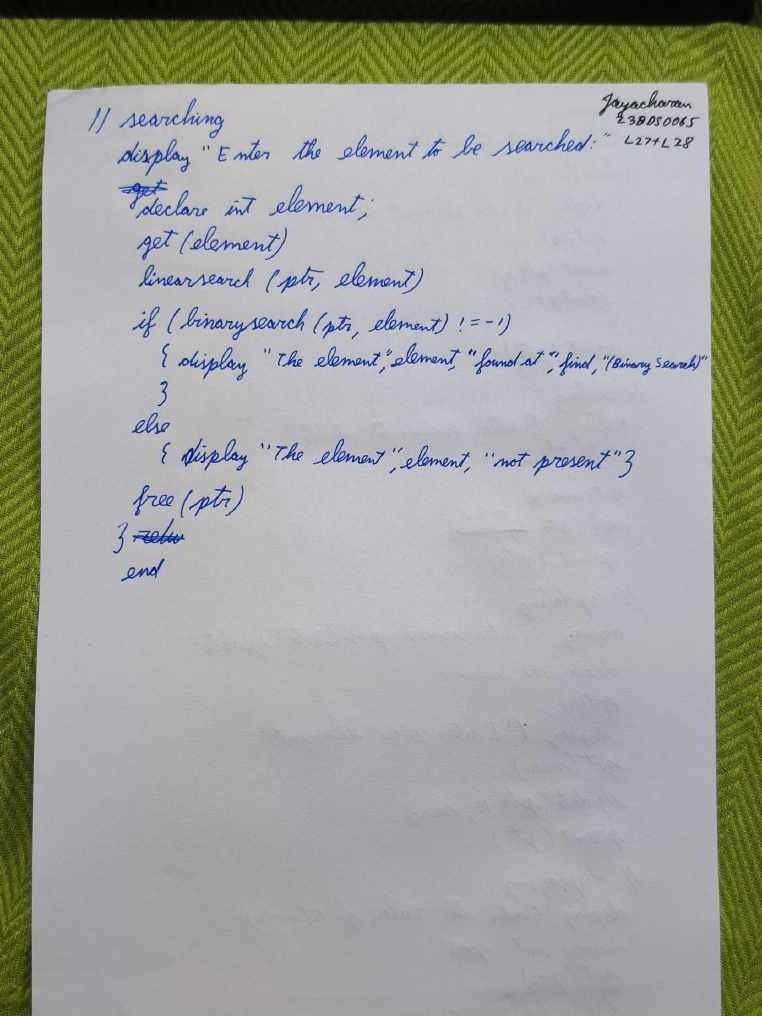 Jayacharan
23BDS0065
L27+L28
// searching
display "Enter the element to be searched:"
declare int element;
get (element)
linearsearch (ptr, element)
if (binarysearch (ptr, element) != -1)
{ display "The element", element, "found at", find, "(Binary Search)"
}
else
{ display "The element", element, "not present" }
free (ptr)
}
end